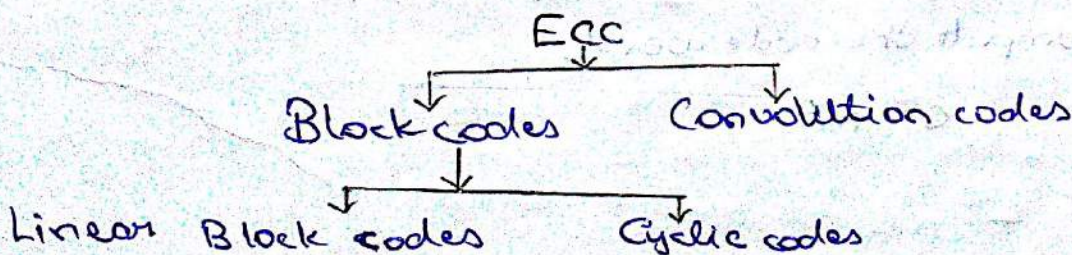 ECC
Block codes Convolution codes
Linear Block codes Cyclic codes